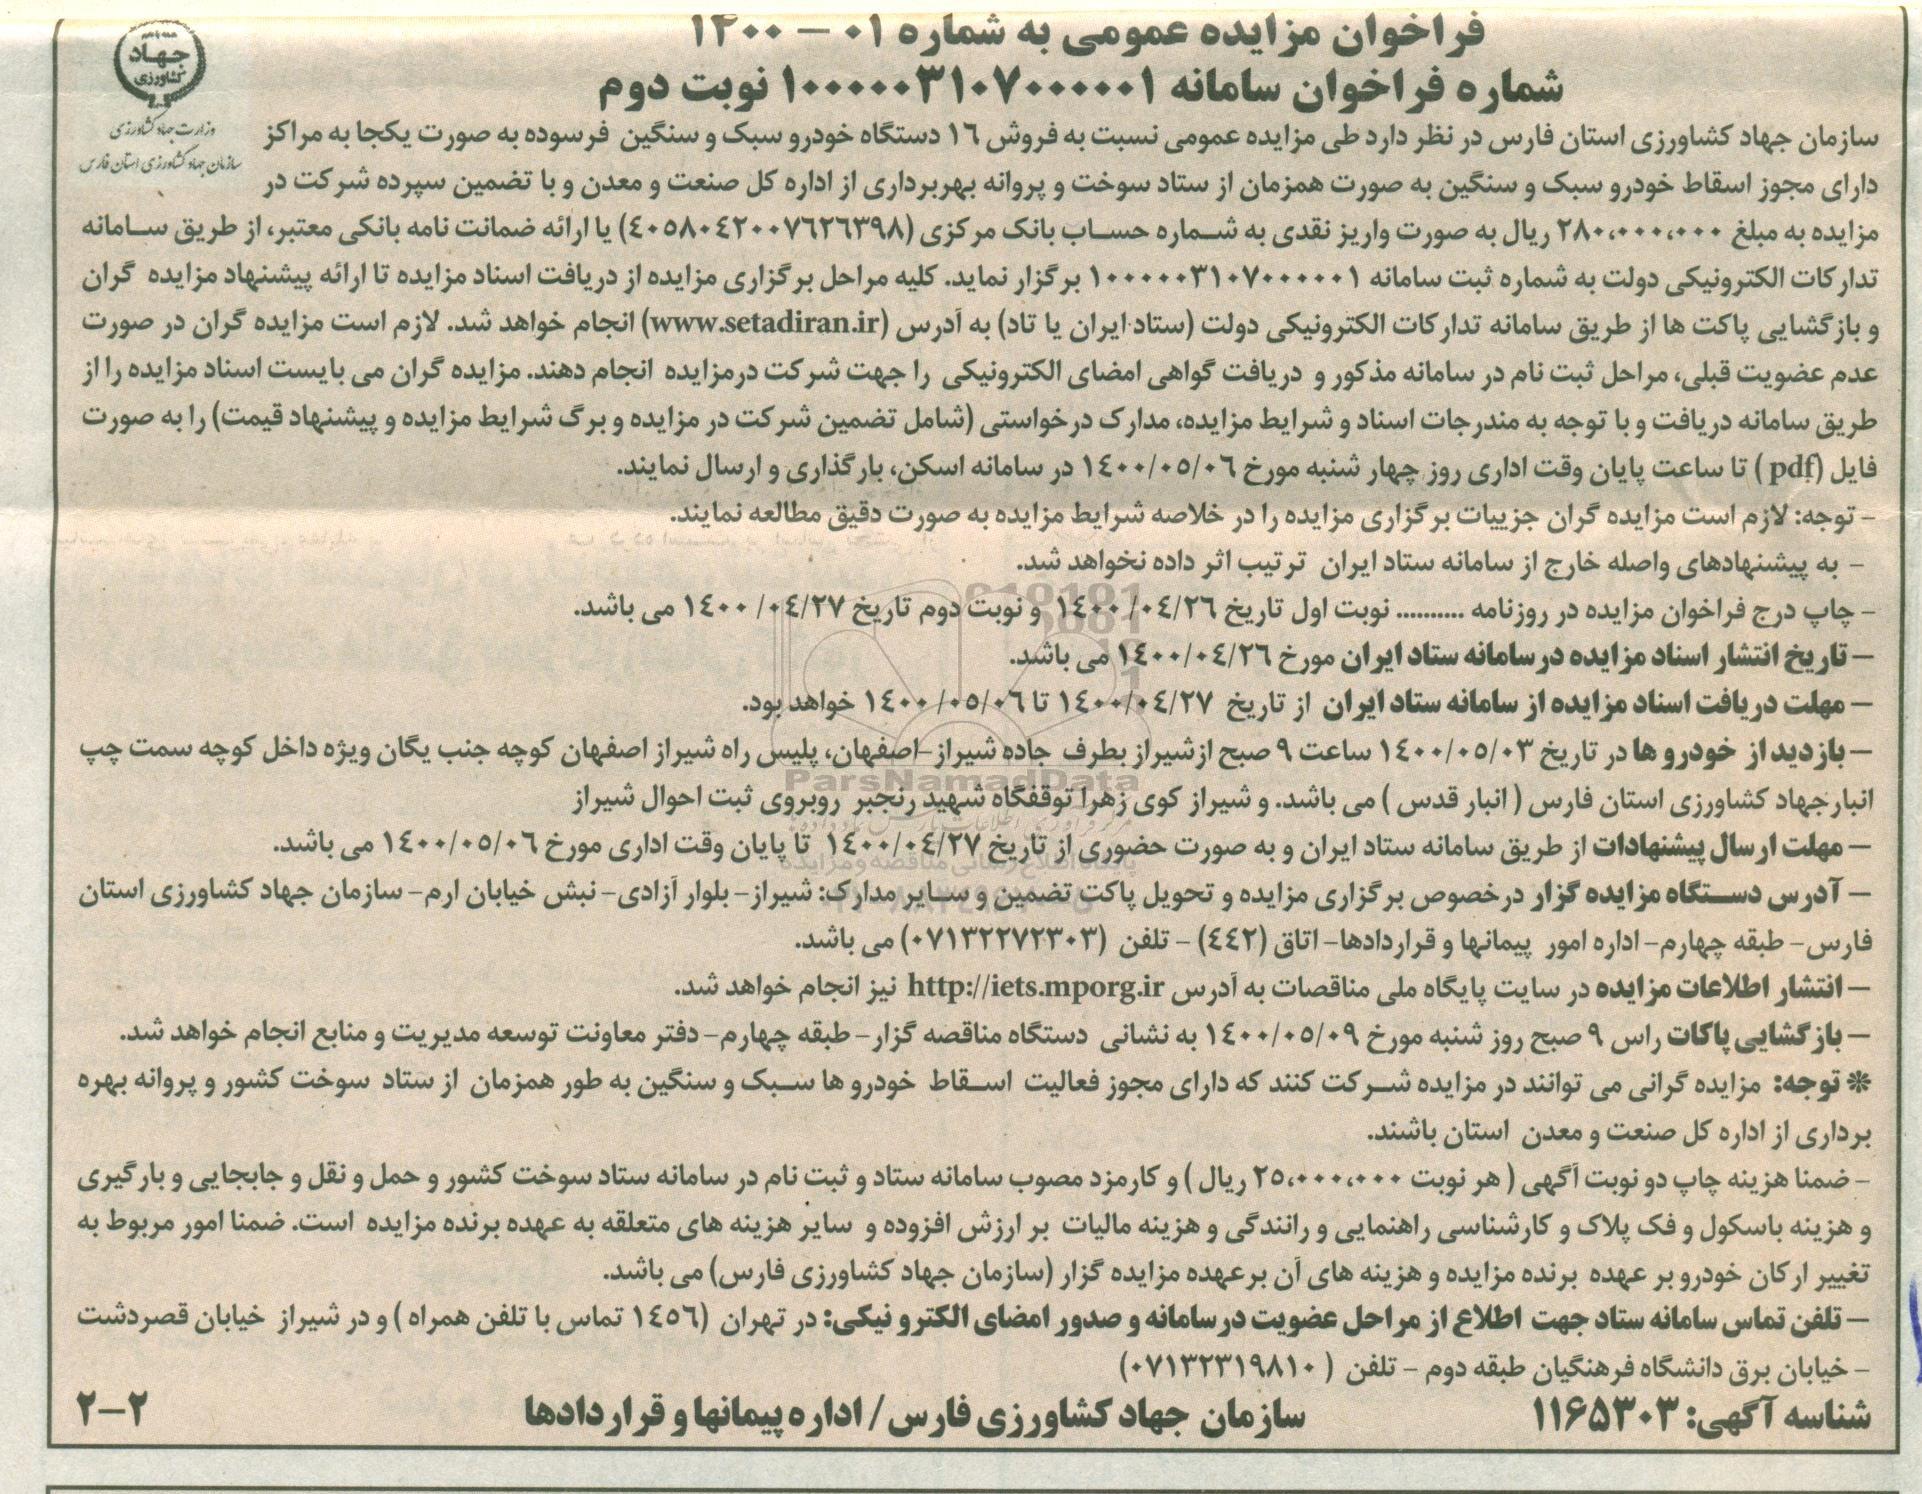 فراخوان مزایده عمومی به شماره ۰۱ – ۱۴۰۰
شماره فراخوان سامانه ۱۰۰۰۰۰۳۱۰۷۰۰۰۰۰۱ نوبت دوم
جهاد
کشاورزی
وزارت جهاد کشاورزی
سازمان جهاد کشاورزی استان فارس
سازمان جهاد کشاورزی استان فارس در نظر دارد طی مزایده عمومی نسبت به فروش ۱۶ دستگاه خودرو سبک و سنگین فرسوده به صورت یکجا به مراکز
دارای مجوز اسقاط خودرو سبک و سنگین به صورت همزمان از ستاد سوخت و پروانه بهربرداری از اداره کل صنعت و معدن و با تضمین سپرده شرکت در
مزایده به مبلغ ۲۸۰،۰۰۰،۰۰۰ ریال به صورت واریز نقدی به شماره حساب بانک مرکزی (۴۰۵۸۰۴۲۰۰۷۶۲۶۳۹۸) یا ارائه ضمانت نامه بانکی معتبر، از طریق سامانه
تدارکات الکترونیکی دولت به شماره ثبت سامانه ۱۰۰۰۰۰۳۱۰۷۰۰۰۰۰۱ برگزار نماید. کلیه مراحل برگزاری مزایده از دریافت اسناد مزایده تا ارائه پیشنهاد مزایده گران
و بازگشایی پاکت ها از طریق سامانه تدارکات الکترونیکی دولت (ستاد ایران یا تاد) به آدرس (www.setadiran.ir) انجام خواهد شد. لازم است مزایده گران در صورت
عدم عضویت قبلی، مراحل ثبت نام در سامانه مذکور و دریافت گواهی امضای الکترونیکی را جهت شرکت درمزایده انجام دهند. مزایده گران می بایست اسناد مزایده را از
طریق سامانه دریافت و با توجه به مندرجات اسناد و شرایط مزایده، مدارک درخواستی (شامل تضمین شرکت در مزایده و برگ شرایط مزایده و پیشنهاد قیمت) را به صورت
فایل (pdf ) تا ساعت پایان وقت اداری روز چهار شنبه مورخ ۱۴۰۰/۰۵/۰۶ در سامانه اسکن، بارگذاری و ارسال نمایند.
- توجه: لازم است مزایده گران جزییات برگزاری مزایده را در خلاصه شرایط مزایده به صورت دقیق مطالعه نمایند.
- به پیشنهادهای واصله خارج از سامانه ستاد ایران ترتیب اثر داده نخواهد شد.
- چاپ درج فراخوان مزایده در روزنامه .......... نوبت اول تاریخ ۱۴۰۰/۰۴/۲۶ و نوبت دوم تاریخ ۱۴۰۰/۰۴/۲۷ می باشد.
– تاریخ انتشار اسناد مزایده درسامانه ستاد ایران مورخ ۱۴۰۰/۰۴/۲۶ می باشد.
– مهلت دریافت اسناد مزایده از سامانه ستاد ایران از تاریخ ۱۴۰۰/۰۴/۲۷ تا ۱۴۰۰/۰۵/۰۶ خواهد بود.
– بازدید از خودرو ها در تاریخ ۱۴۰۰/۰۵/۰۳ ساعت ۹ صبح ازشیراز بطرف جاده شیراز-اصفهان، پلیس راه شیراز اصفهان کوچه جنب یگان ویژه داخل کوچه سمت چپ
ParsNamadData
انبارجهاد کشاورزی استان فارس ( انبار قدس ) می باشد. و شیراز کوی زهرا توقفگاه شهید رنجبر روبروی ثبت احوال شیراز
– مهلت ارسال پیشنهادات از طریق سامانه ستاد ایران و به صورت حضوری از تاریخ ۱۴۰۰/۰۴/۲۷ تا پایان وقت اداری مورخ ۱۴۰۰/۰۵/۰۶ می باشد.
– آدرس دستگاه مزایده گزار درخصوص برگزاری مزایده و تحویل پاکت تضمین و سایر مدارک: شیراز- بلوار آزادی- نبش خیابان ارم- سازمان جهاد کشاورزی استان
فارس- طبقه چهارم- اداره امور پیمانها و قراردادها- اتاق (۴۴۲) - تلفن (۰۷۱۳۲۲۷۲۳۰۳) می باشد.
– انتشار اطلاعات مزایده در سایت پایگاه ملی مناقصات به آدرس http://iets.mporg.ir نیز انجام خواهد شد.
– بازگشایی پاکات راس ۹ صبح روز شنبه مورخ ۱۴۰۰/۰۵/۰۹ به نشانی دستگاه مناقصه گزار- طبقه چهارم- دفتر معاونت توسعه مدیریت و منابع انجام خواهد شد.
* توجه: مزایده گرانی می توانند در مزایده شرکت کنند که دارای مجوز فعالیت اسقاط خودرو ها سبک و سنگین به طور همزمان از ستاد سوخت کشور و پروانه بهره
برداری از اداره کل صنعت و معدن استان باشند.
- ضمنا هزینه چاپ دو نوبت آگهی ( هر نوبت ۲۵،۰۰۰،۰۰۰ ریال ) و کارمزد مصوب سامانه ستاد و ثبت نام در سامانه ستاد سوخت کشور و حمل و نقل و جابجایی و بارگیری
و هزینه باسکول و فک پلاک و کارشناسی راهنمایی و رانندگی و هزینه مالیات بر ارزش افزوده و سایر هزینه های متعلقه به عهده برنده مزایده است. ضمنا امور مربوط به
تغییر ارکان خودرو بر عهده برنده مزایده و هزینه های آن برعهده مزایده گزار (سازمان جهاد کشاورزی فارس) می باشد.
– تلفن تماس سامانه ستاد جهت اطلاع از مراحل عضویت درسامانه و صدور امضای الکترو نیکی: در تهران (۱۴۵۶ تماس با تلفن همراه ) و در شیراز خیابان قصردشت
- خیابان برق دانشگاه فرهنگیان طبقه دوم - تلفن ( ۰۷۱۳۲۳۱۹۸۱۰)
شناسه آگهی: ۱۱۶۵۳۰۳ سازمان جهاد کشاورزی فارس/ اداره پیمانها و قراردادها ۲–۲